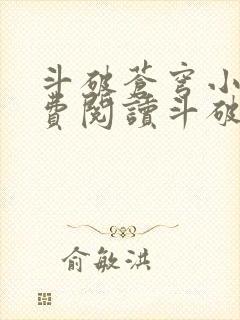 斗破蒼穹小
費閱讀斗破
俞敏洪